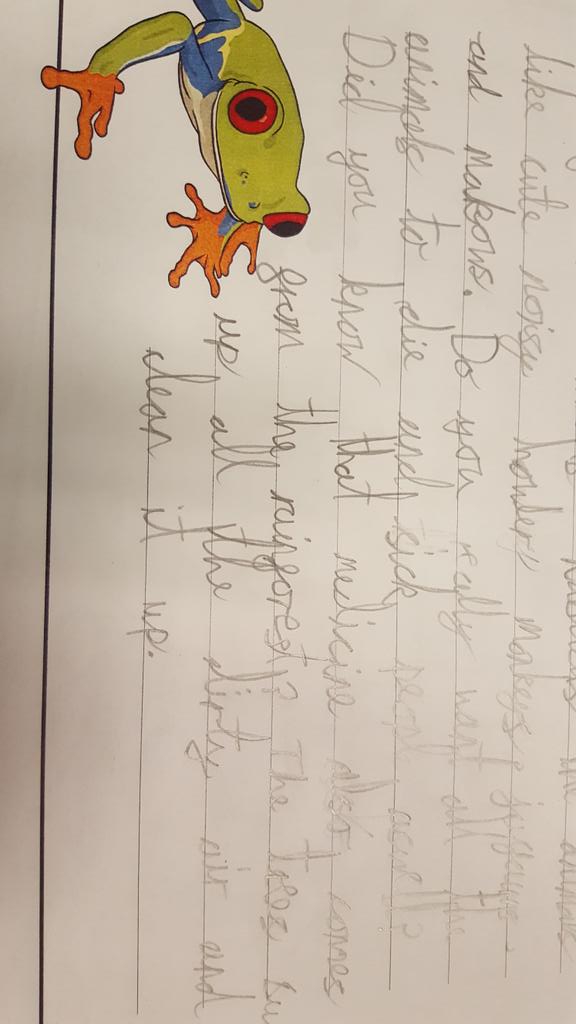 the animals
like cute noisy howler makeys,
and makows. Do you really want all the
animals to die and sick people
Did you know that medicine also comes
from the rainforest? The trees
up all the dirty air and
clean it up.